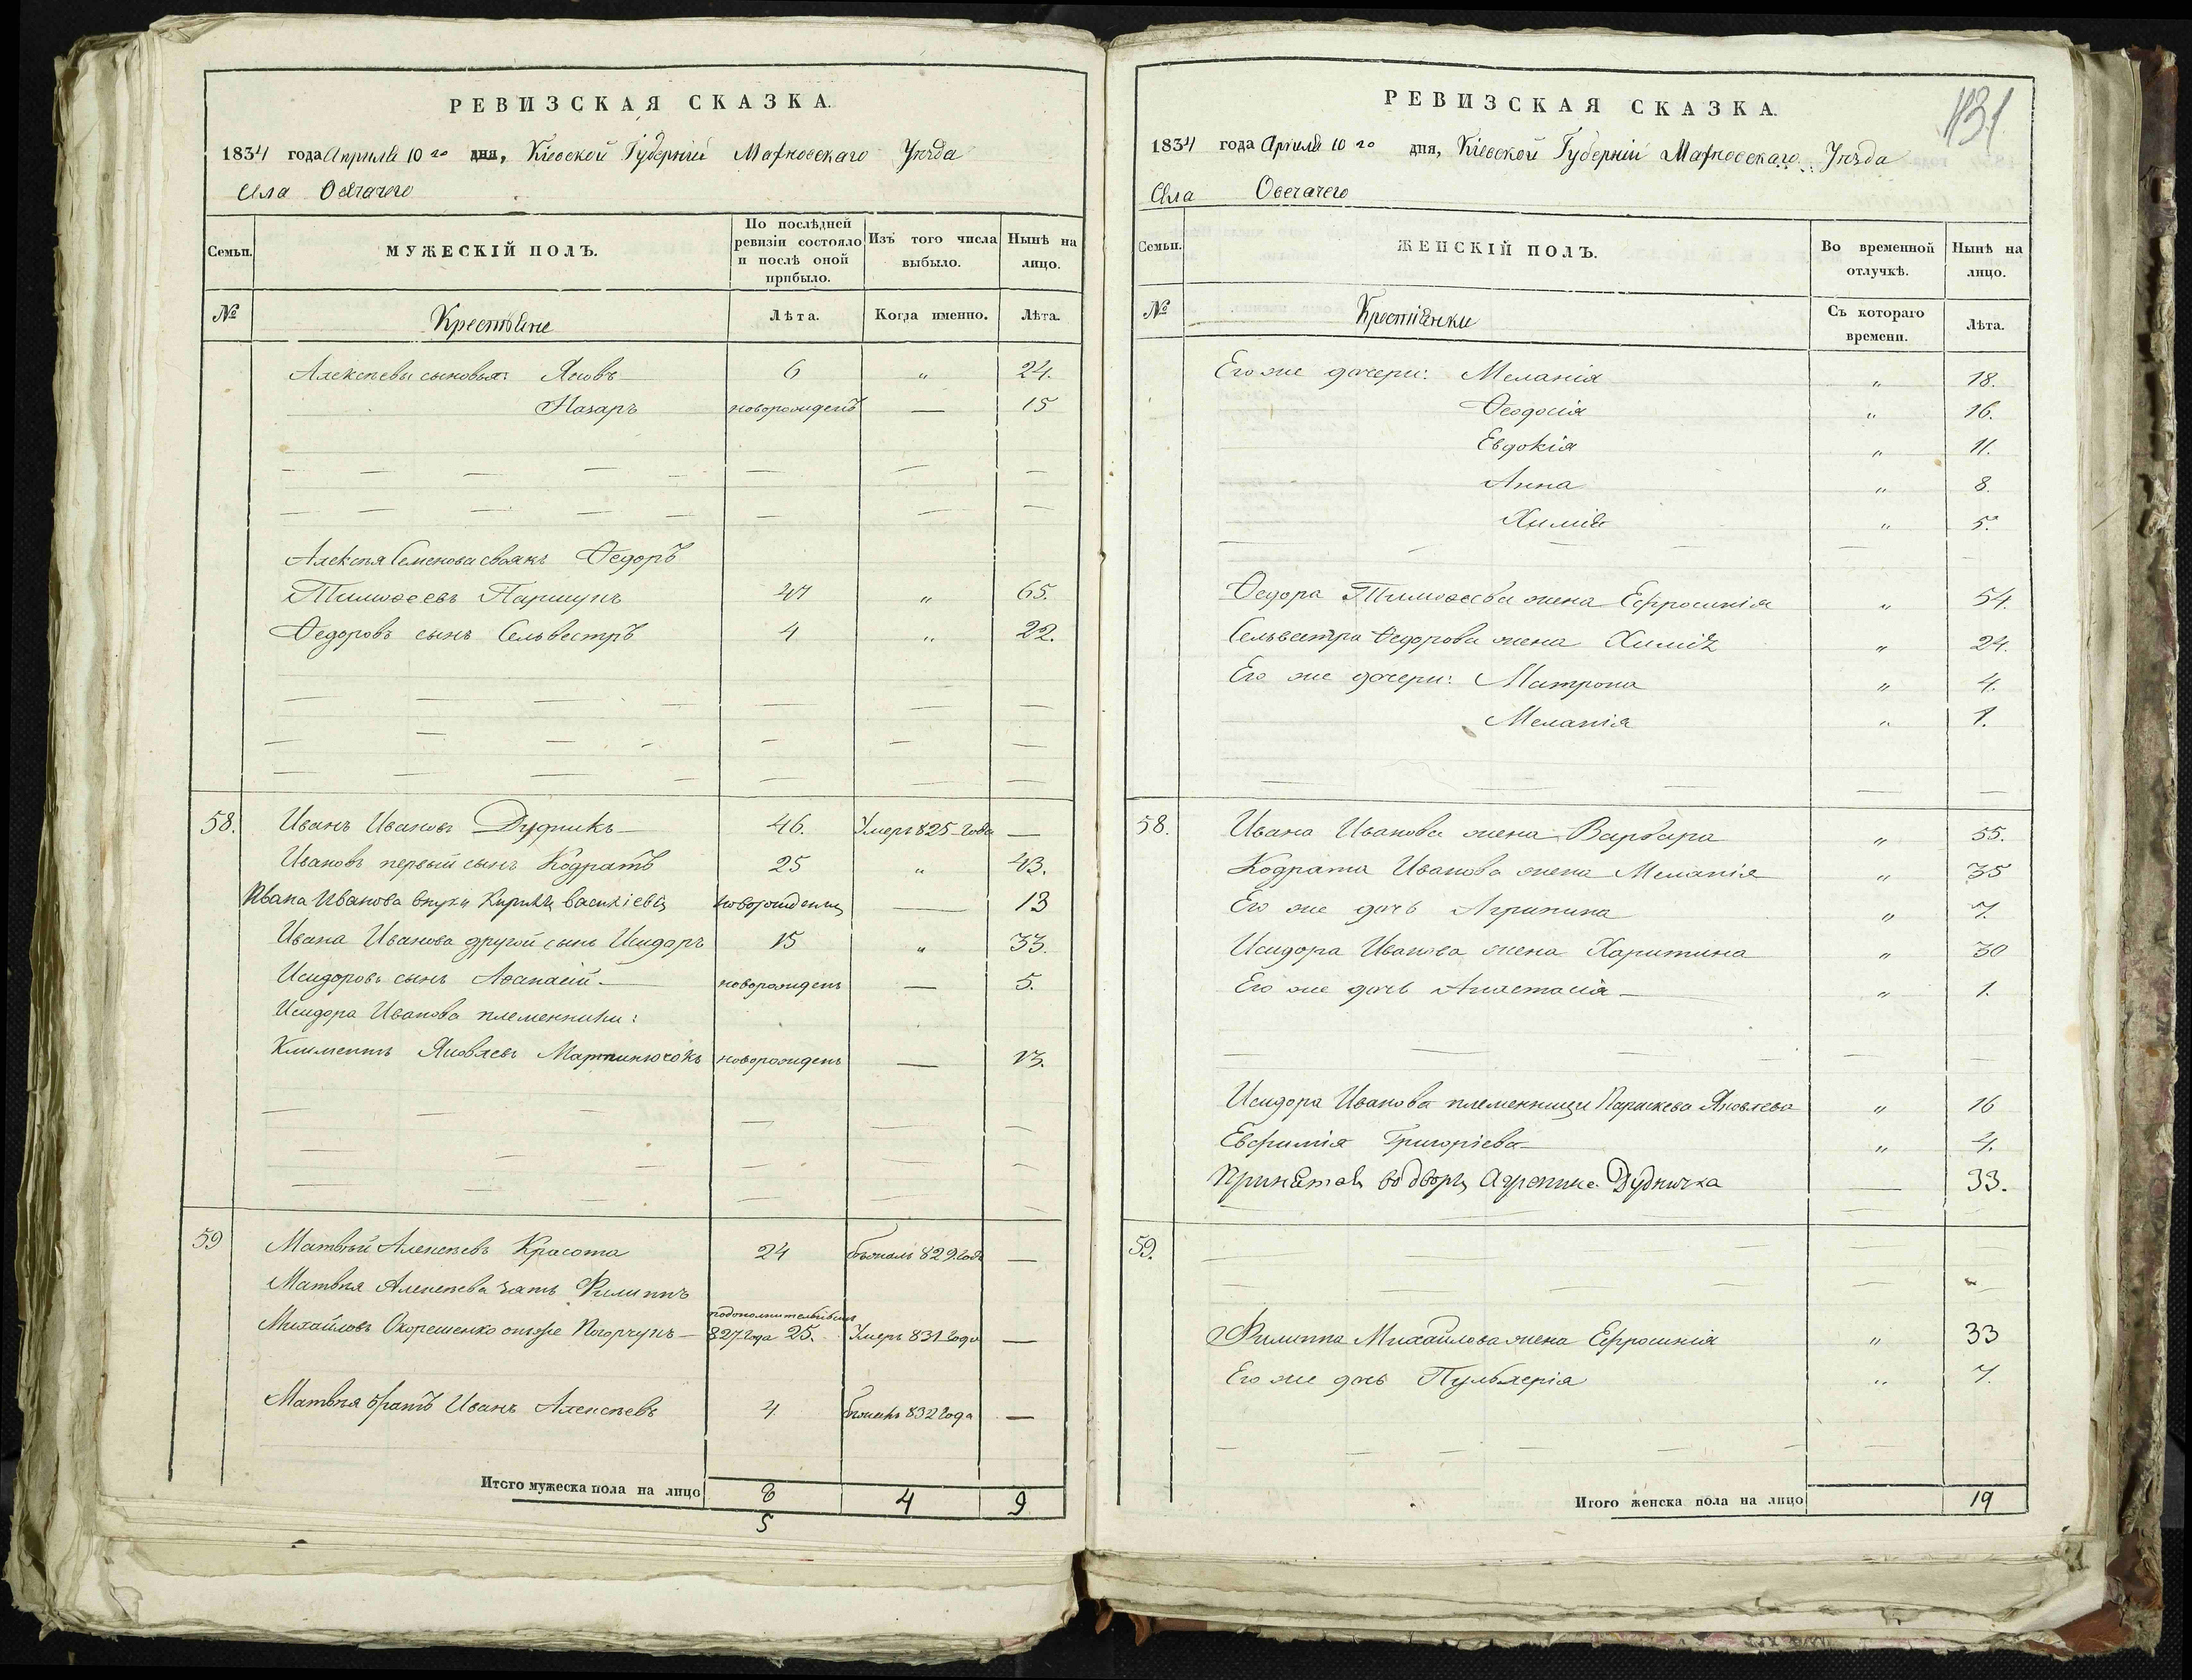 РЕВИЗСКАЯ СКАЗКА.
1834 года Апреля 10го дня, Кіевской Губерніи Махновскаго Уѣзда
Села Овсгачего
Семьи. МУЖЕСКІЙ ПОЛЪ. По послѣдней ревизіи состояло и послѣ оной прибыло. Изъ того числа выбыло. Нынѣ на лицо.
№ Крестьяне Лѣта. Когда именно. Лѣта.
Алексѣевы сыновья: Яковъ 6 " 24.
Назаръ новорожденъ — 15
Алексѣя Семенова своякъ Ѳедоръ
Тимоѳеевъ Паршунъ 47 " 65.
Ѳедоровъ сынъ Сельвестръ 4 " 22.
58. Иванъ Ивановъ Дудникъ 46. Умеръ 825 года —
Ивановъ первый сынъ Кодратъ 25 " 43.
Ивана Иванова внукъ Кирилъ Василіевъ новорожденъ — 13
Ивана Иванова другой сынъ Исидоръ 15 " 33.
Исидоровъ сынъ Аѳанасій новорожденъ — 5.
Исидора Иванова племенники:
Климентъ Яковлевъ Мартинючокъ новорожденъ — 13.
59 Матвѣй Алексѣевъ Красота 24 бѣжалъ 829 года —
Матвѣя Алексѣева зять Филиппъ
Михайловъ онъ же 827 года 25. Умеръ 831 года —
Матвѣя братъ Иванъ Алексѣевъ 4 бѣжалъ 832 года —
Итого мужеска пола на лицо 8 4 9
5
РЕВИЗСКАЯ СКАЗКА.
131
1834 года Апреля 10го дня, Кіевской Губерніи Махновскаго Уѣзда
Села Овсгачего
Семьи. ЖЕНСКІЙ ПОЛЪ. Во временной отлучкѣ. Нынѣ на лицо.
№ Крестіянки Съ котораго времени. Лѣта.
Его же дочери: Меланія " 18.
Ѳеодосія " 16.
Евдокія " 11.
Анна " 8.
Химія " 5.
Ѳедора Тимоѳеева жена Ефросинія " 54.
Сельвестра Ѳедорова жена Химія " 24.
Его же дочери: Матрона " 4.
Меланія " 1.
58. Ивана Иванова жена Варвара " 55.
Кодрата Иванова жена Меланія " 35
Его же дочь Агрипина " 7.
Исидора Иванова жена Харитина " 30
Его же дочь Анастасія " 1.
Исидора Иванова племенницы Параскева Яковлева " 16
Евфимія Григоріева " 4.
Принятая во дворъ Агрепина Дудничка — 33.
59.
Филиппа Михайлова жена Ефросинія " 33
Его же дочь Пульхерія " 7.
Итого женска пола на лицо 19